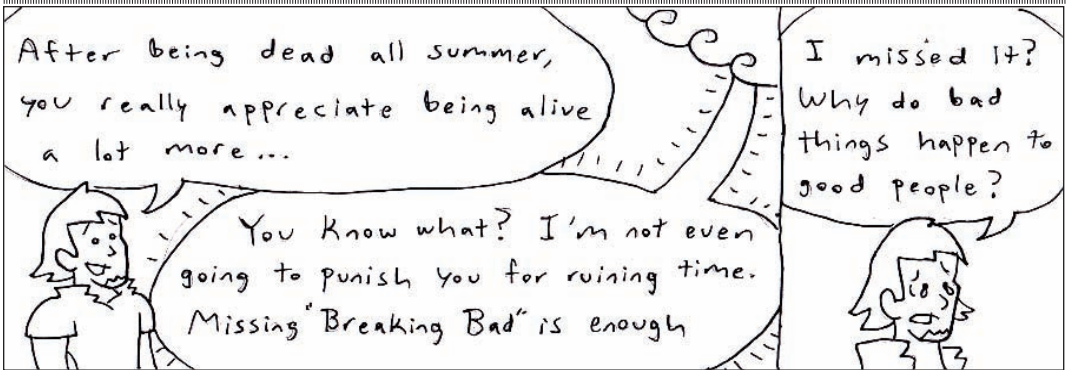 After being dead all summer,
you really appreciate being alive
a lot more...
You know what? I'm not even
going to punish you for ruining time.
Missing "Breaking Bad" is enough
I missed it?
Why do bad
things happen to
good people?